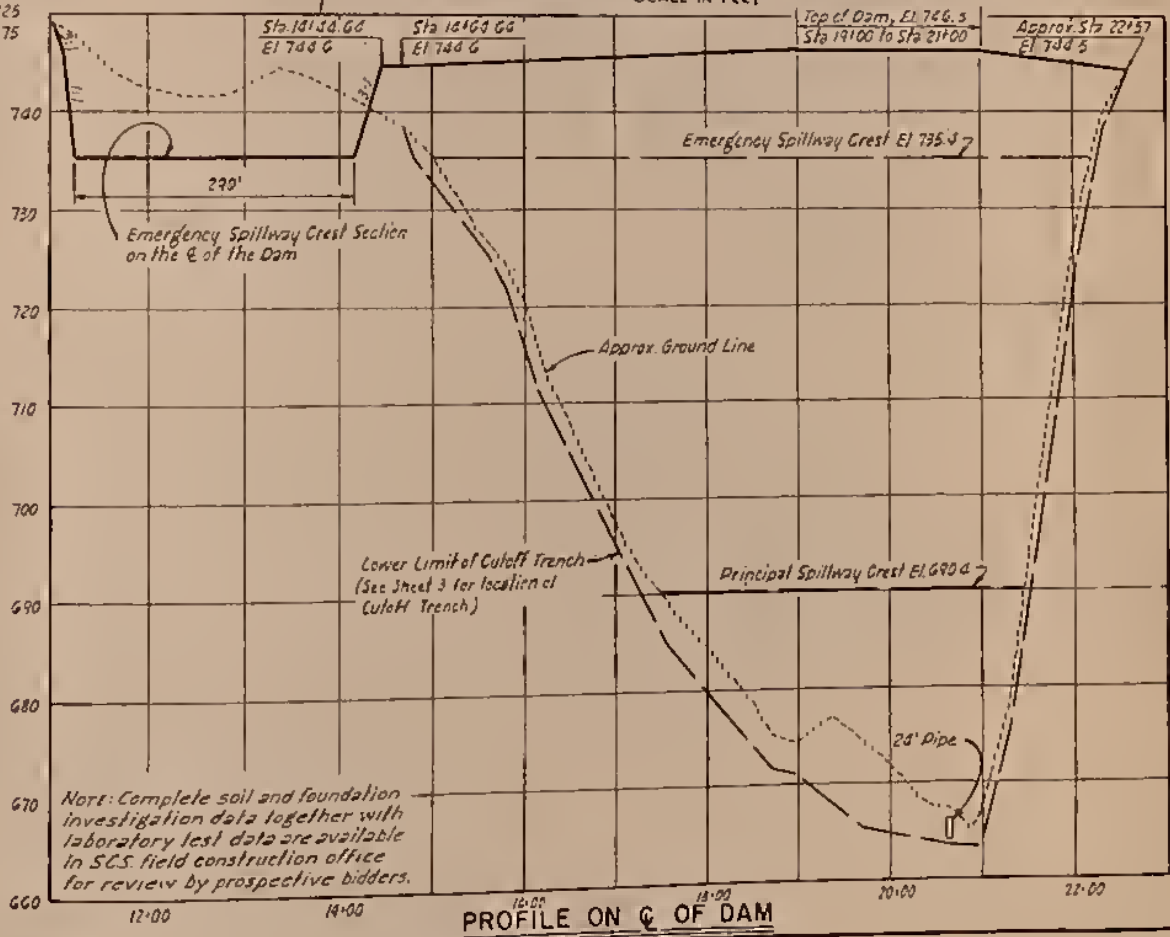 SCALE IN FEET
25
75
Sta. 14+44.66
El 744.6
Sta 14+64.66
El 744.6
Top of Dam, El. 746.5
Sta 19+00 to Sta 21+00
Approx. Sta 22+57
El 744.5
740
730
720
710
700
690
680
670
660
3:1
Emergency Spillway Crest El 735.4
290'
Emergency Spillway Crest Section
on the ℄ of the Dam
Approx. Ground Line
Lower Limit of Cutoff Trench
(See Sheet 3 for location of
Cutoff Trench)
Principal Spillway Crest El. 690.4
24" Pipe
NOTE: Complete soil and foundation
investigation data together with
laboratory test data are available
in S.C.S. field construction office
for review by prospective bidders.
12+00
14+00
16+00
18+00
20+00
22+00
PROFILE ON ℄ OF DAM